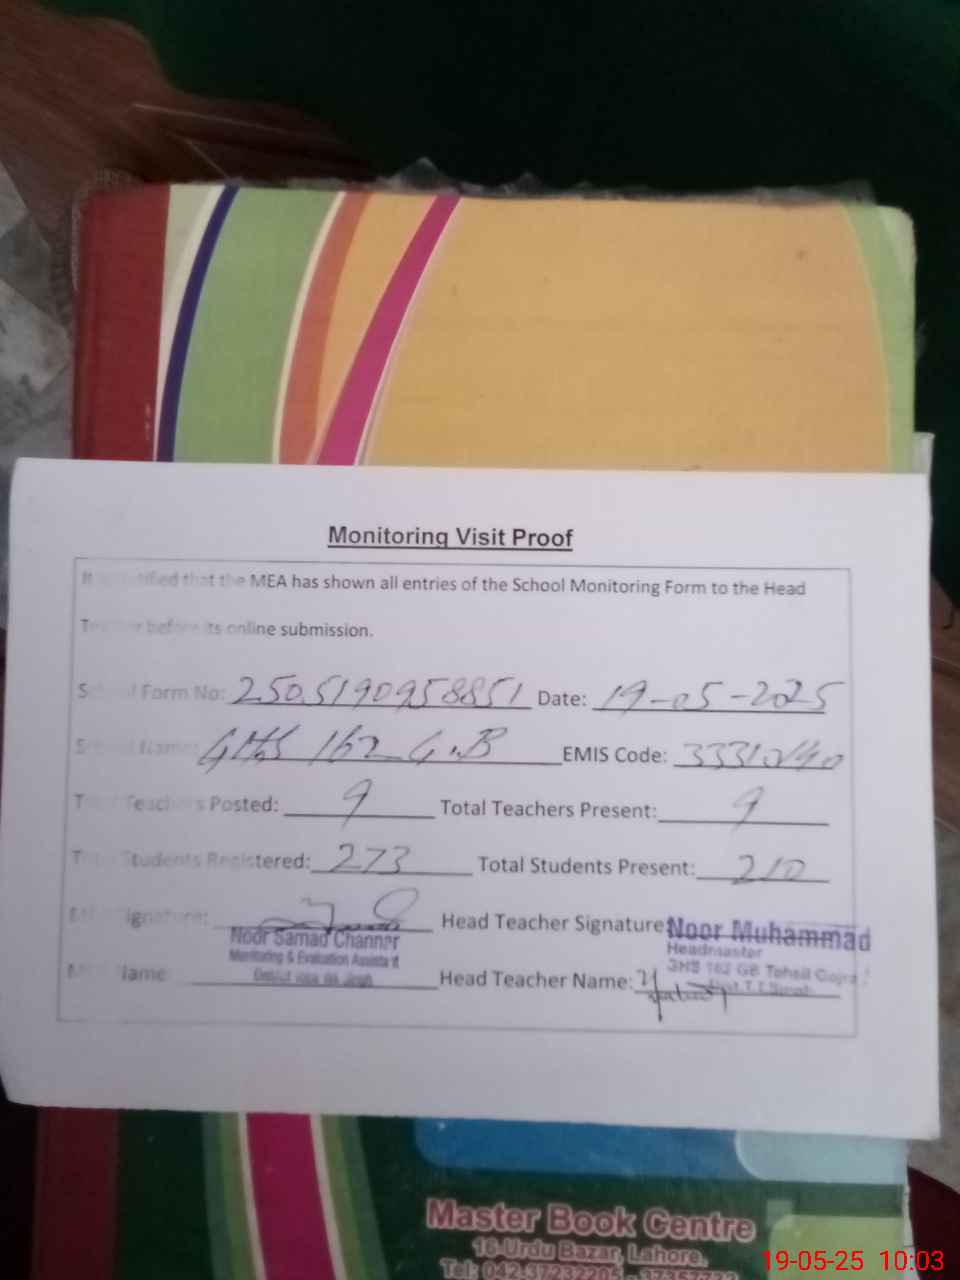 Monitoring Visit Proof
It is certified that the MEA has shown all entries of the School Monitoring Form to the Head
Teacher before its online submission.
School Form No: 2505190958851 Date: 19-05-2025
School Name: GHS 162 G.B EMIS Code:
Total Teachers Posted: 9 Total Teachers Present: 9
Total Students Registered: 273 Total Students Present: 210
MEA Signature: Head Teacher Signature: Noor Muhammad
Noor Samad Channar Headmaster
Monitoring & Evaluation Assistant GHS 162 GB Tehsil Gojra
MEA Name: Head Teacher Name: Distt. T.T.Singh
Master Book Centre
16-Urdu Bazar, Lahore.
Tel: 042-37232205
19-05-25 10:03